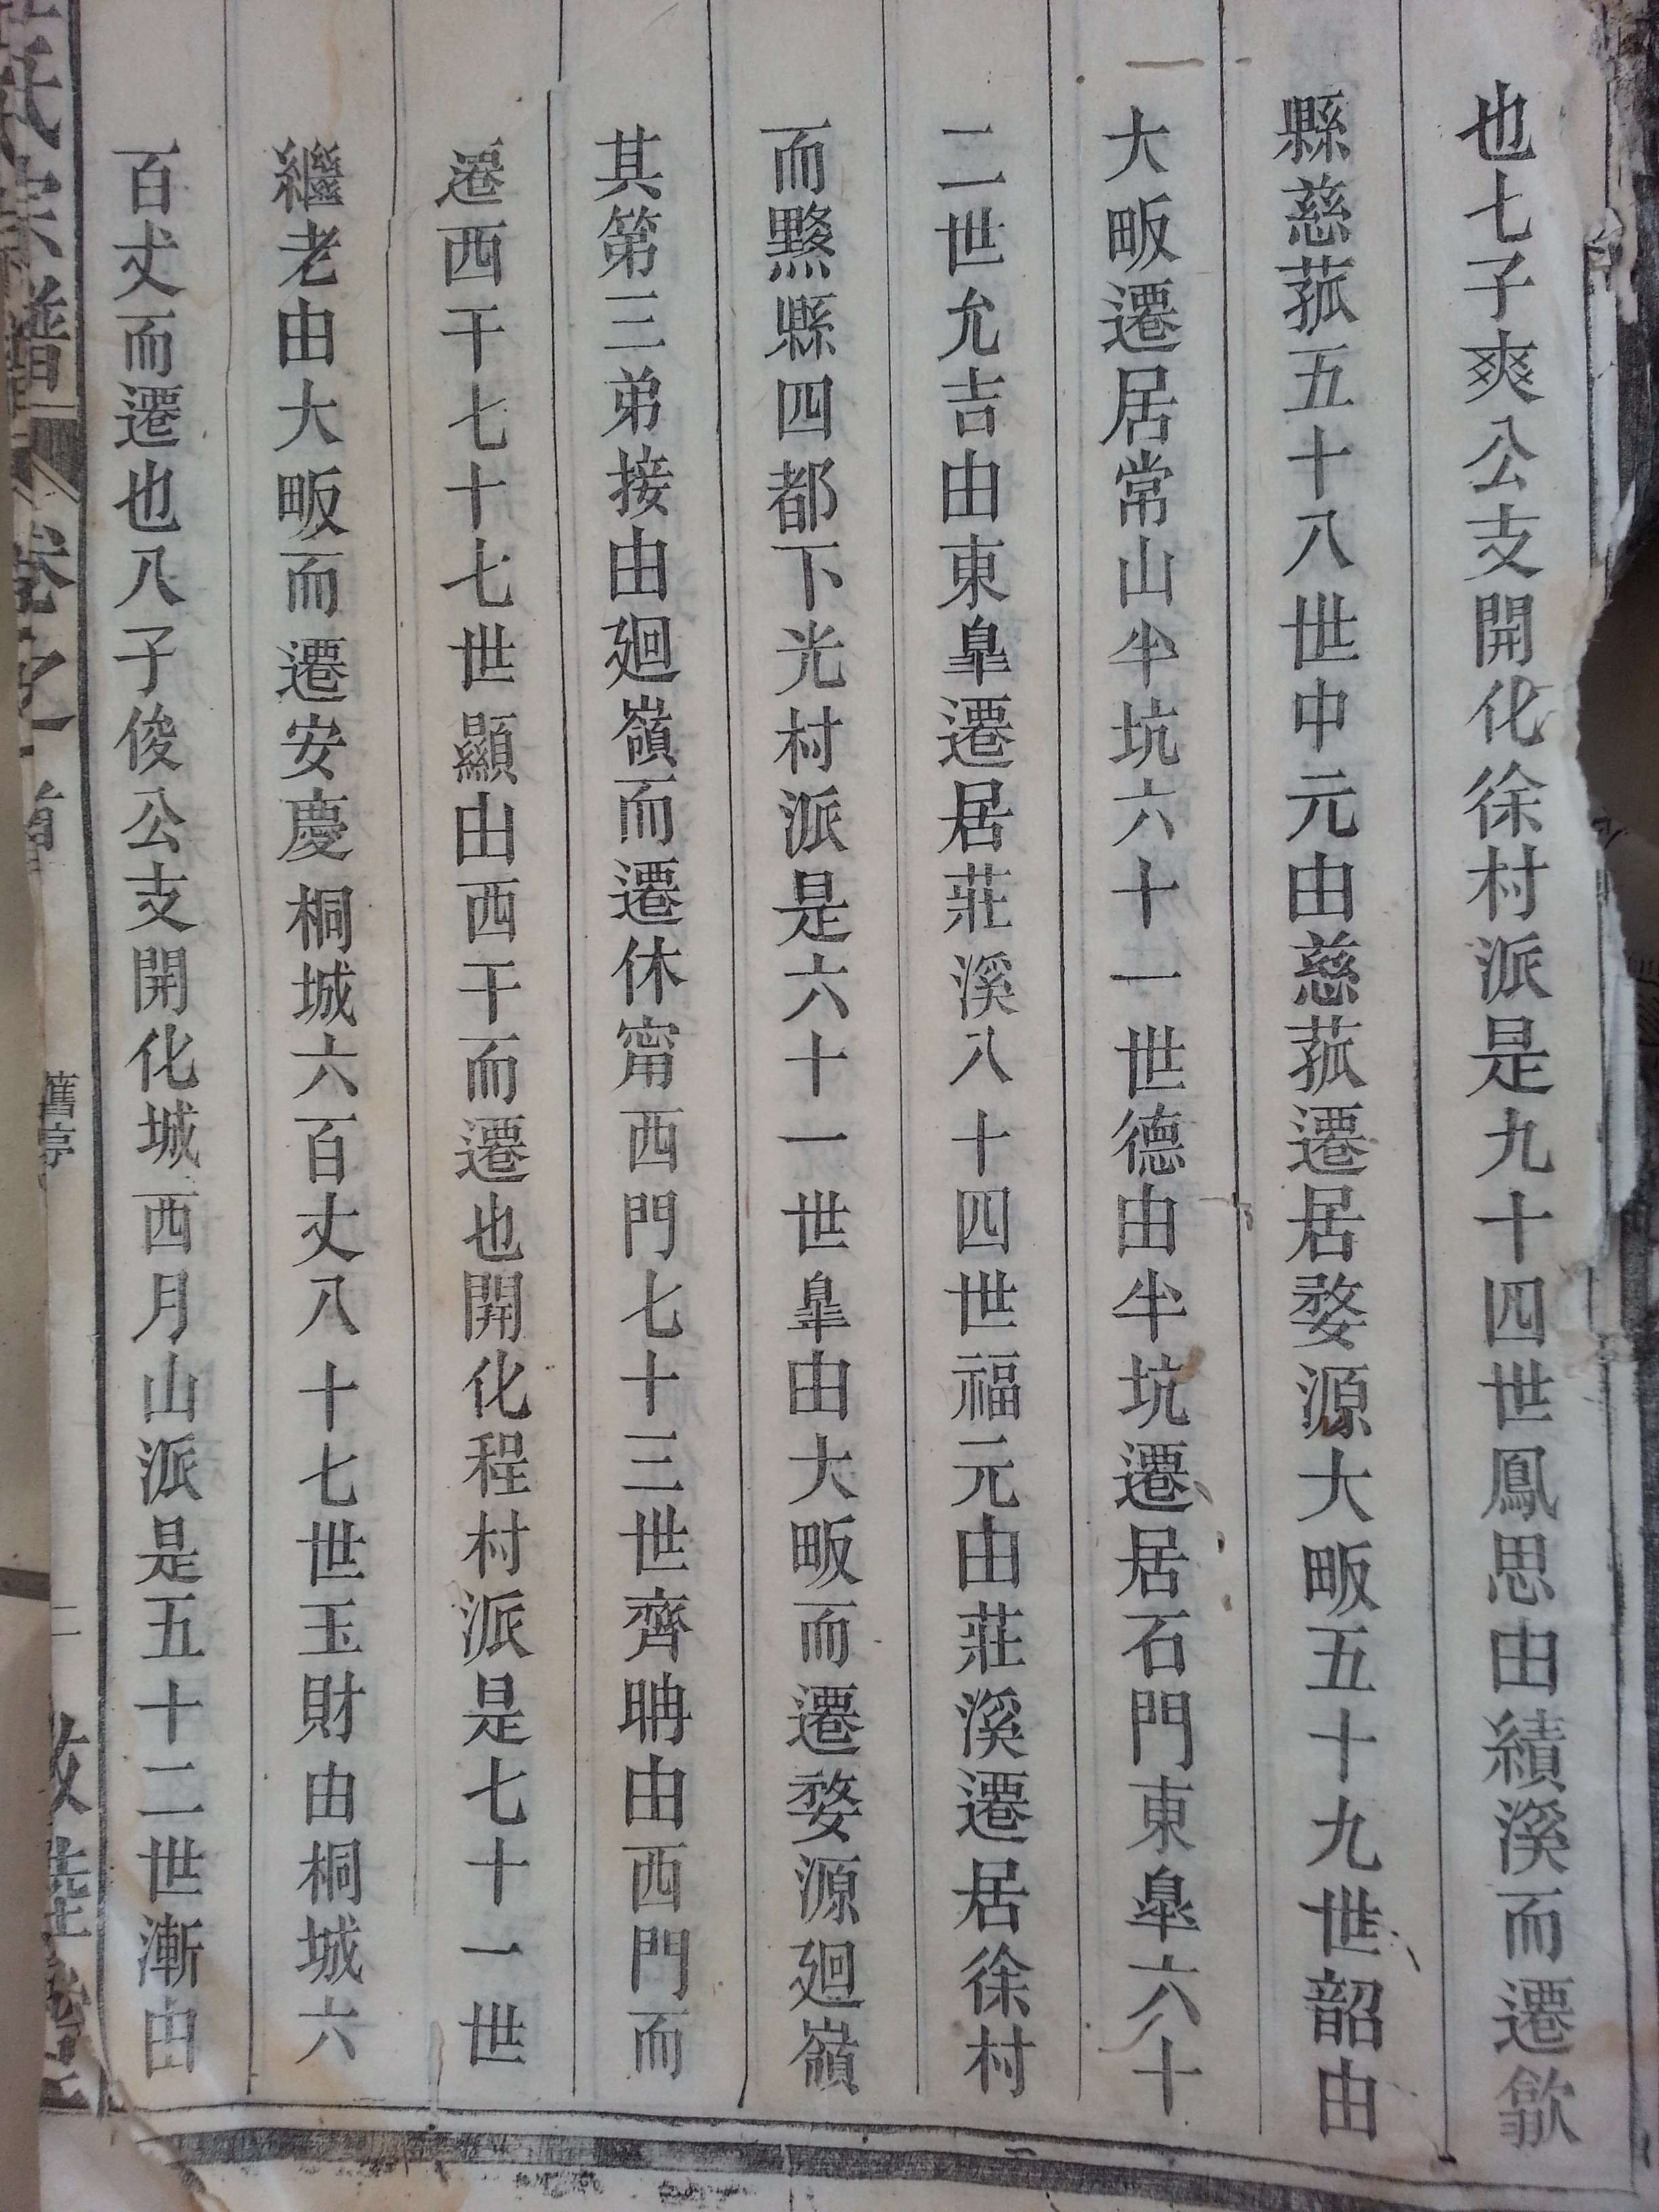 也七子爽公支開化徐村派是九十四世鳳思由績溪而遷歙
縣慈菰五十八世中元由慈菰遷居婺源大畈五十九世韶由
大畈遷居常山半坑六十一世德由半坑遷居石門東臯六十
二世允吉由東臯遷居莊溪八十四世福元由莊溪遷居徐村
而黟縣四都下光村派是六十一世臯由大畈而遷婺源廻嶺
其第三弟接由廻嶺而遷休甯西門七十三世齊聃由西門而
遷西干七十七世顯由西干而遷也開化程村派是七十一世
繼老由大畈而遷安慶桐城六百丈八十七世玉財由桐城六
百丈而遷也八子俊公支開化城西月山派是五十二世漸由
氏宗譜 卷之首 舊序 二